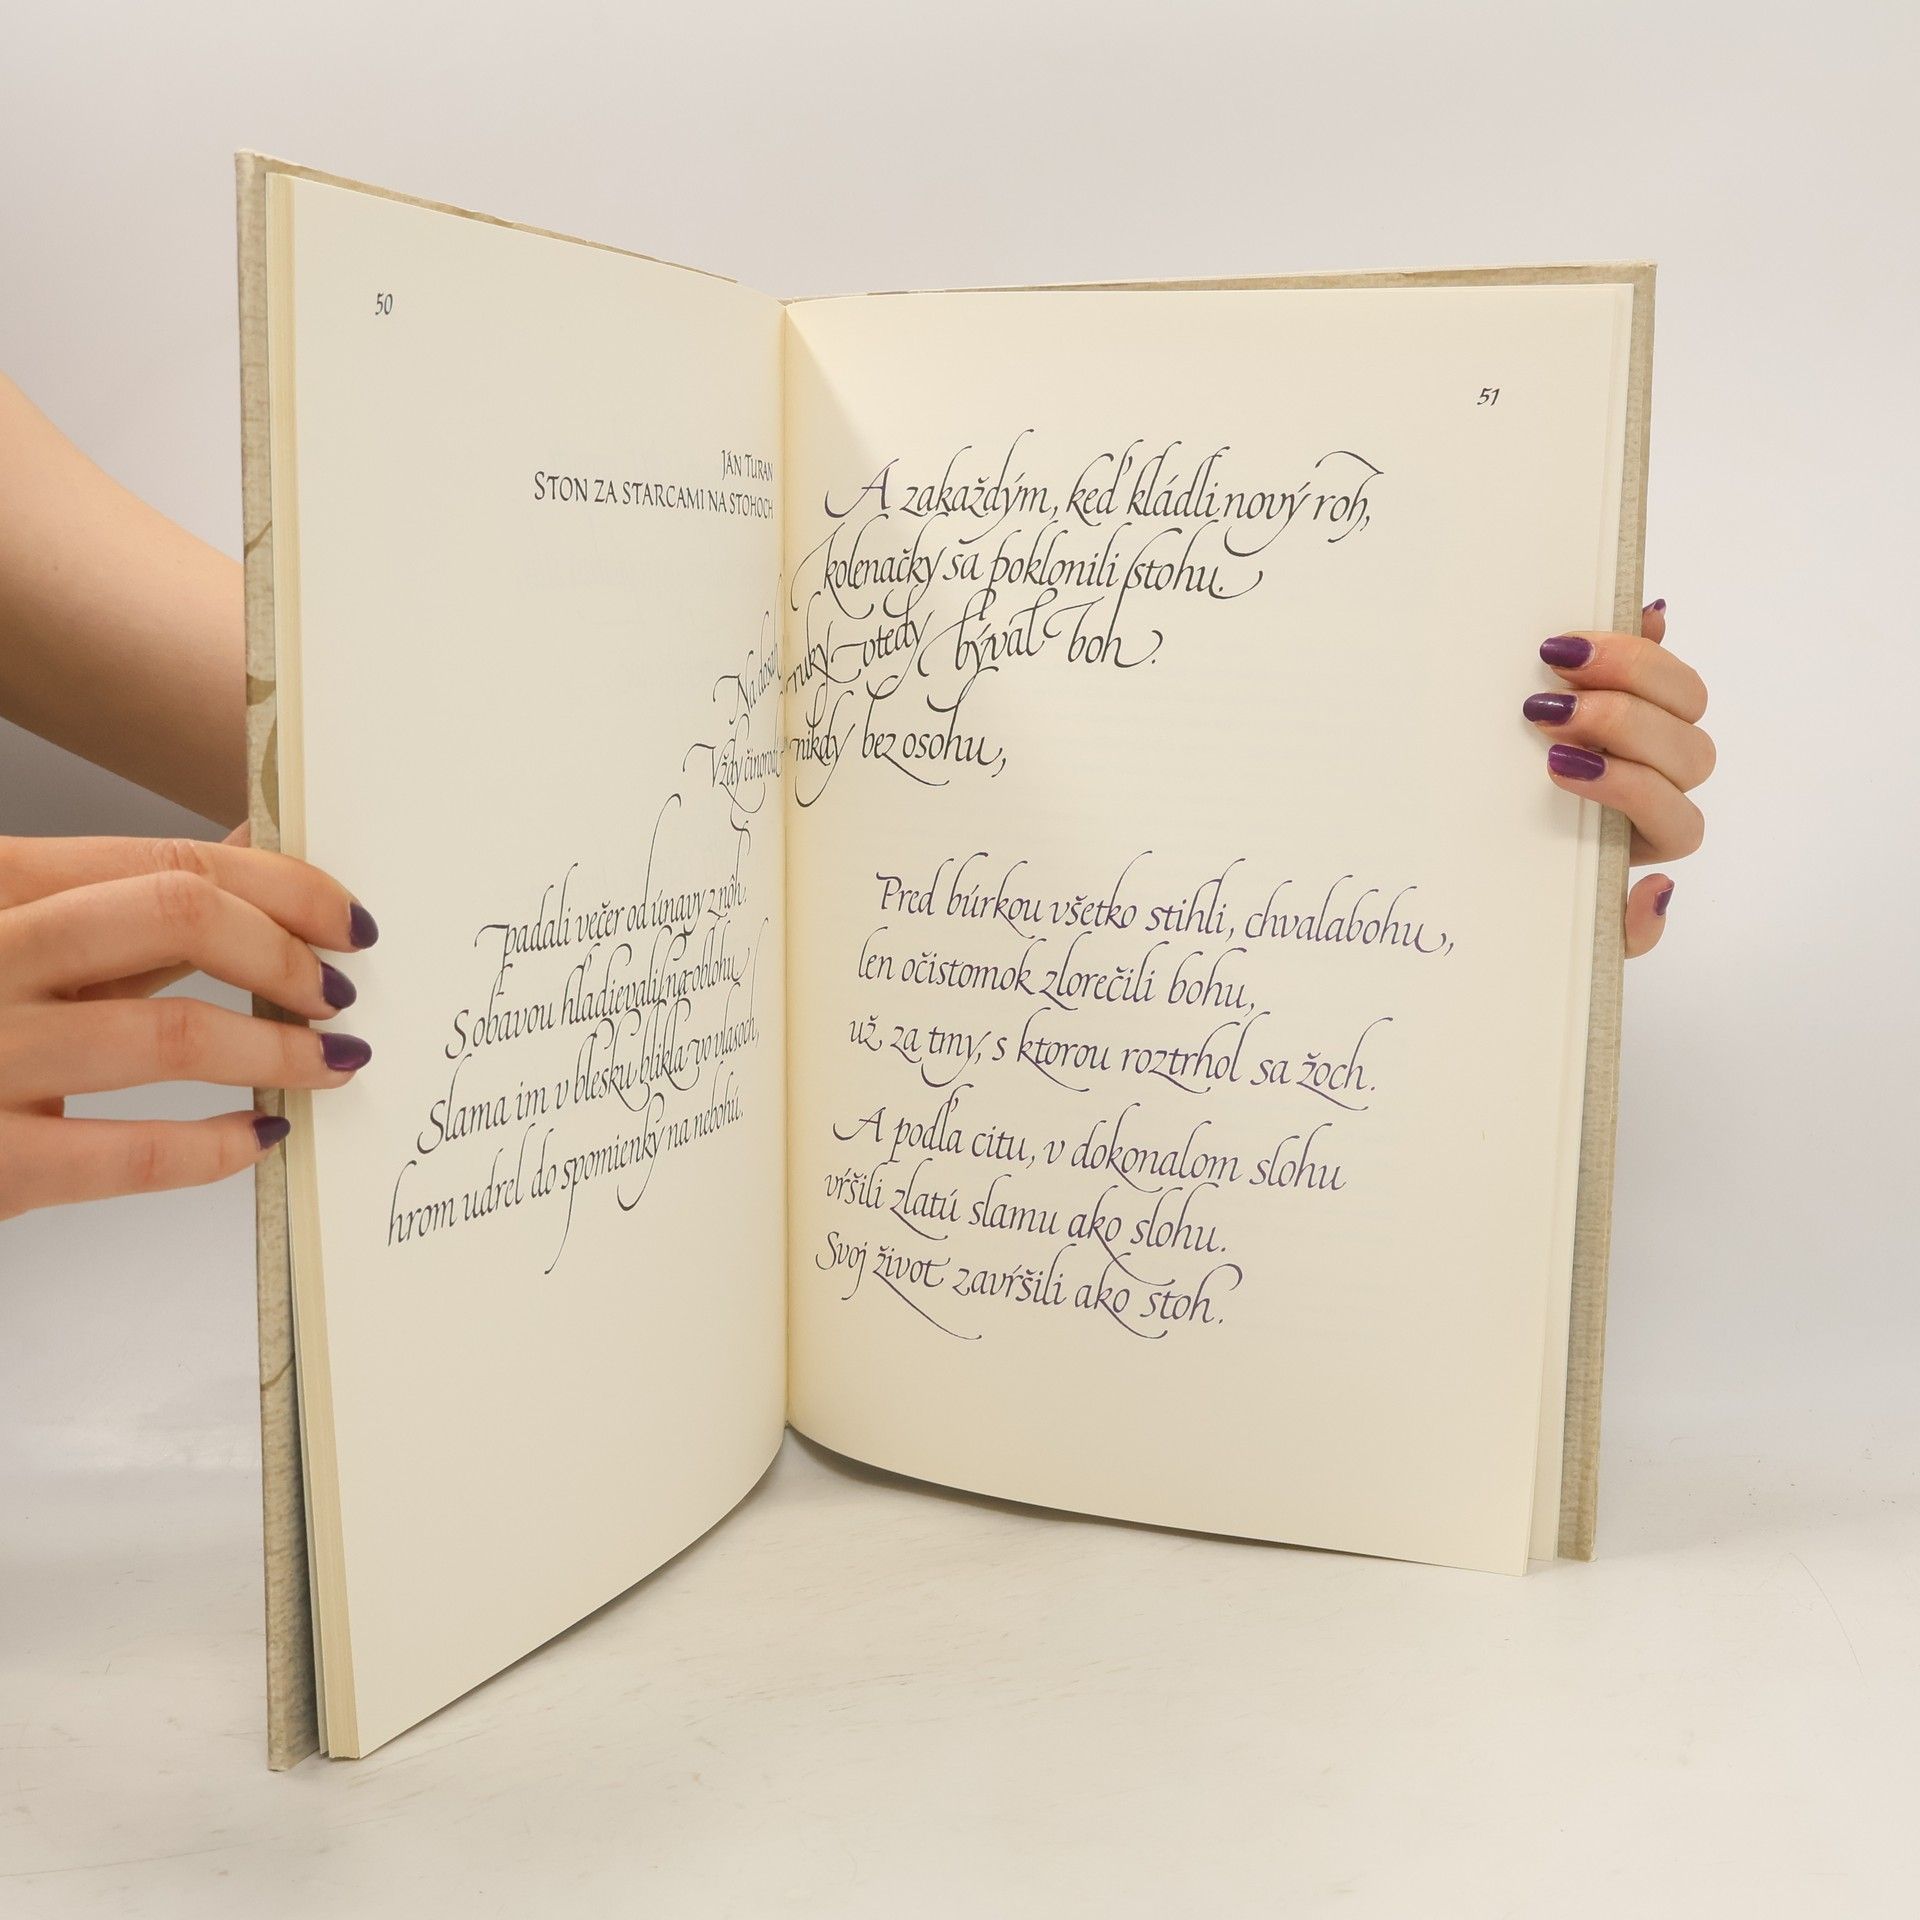 50
JÁN TURAN
STON ZA STARCAMI NA STOHOCH
51
A zakaždým, keď kládli nový roh,
kolenačky sa poklonili stohu.
Na dosah ruky vtedy býval boh.
Vždy nikdy bez osohu,
padali večer od únavy z nôh.
S obavou hľadievali na oblohu.
Slama im v blesku blikla vo vlasoch,
hrom udrel do spomienky na nebohú.
Pred búrkou všetko stihli, chvalabohu,
len očistomok zlorečili bohu,
už za tmy, s ktorou roztrhol sa žoch.
A podľa citu, v dokonalom slohu
vŕšili zlatú slamu ako slohu.
Svoj život zavŕšili ako stoh.